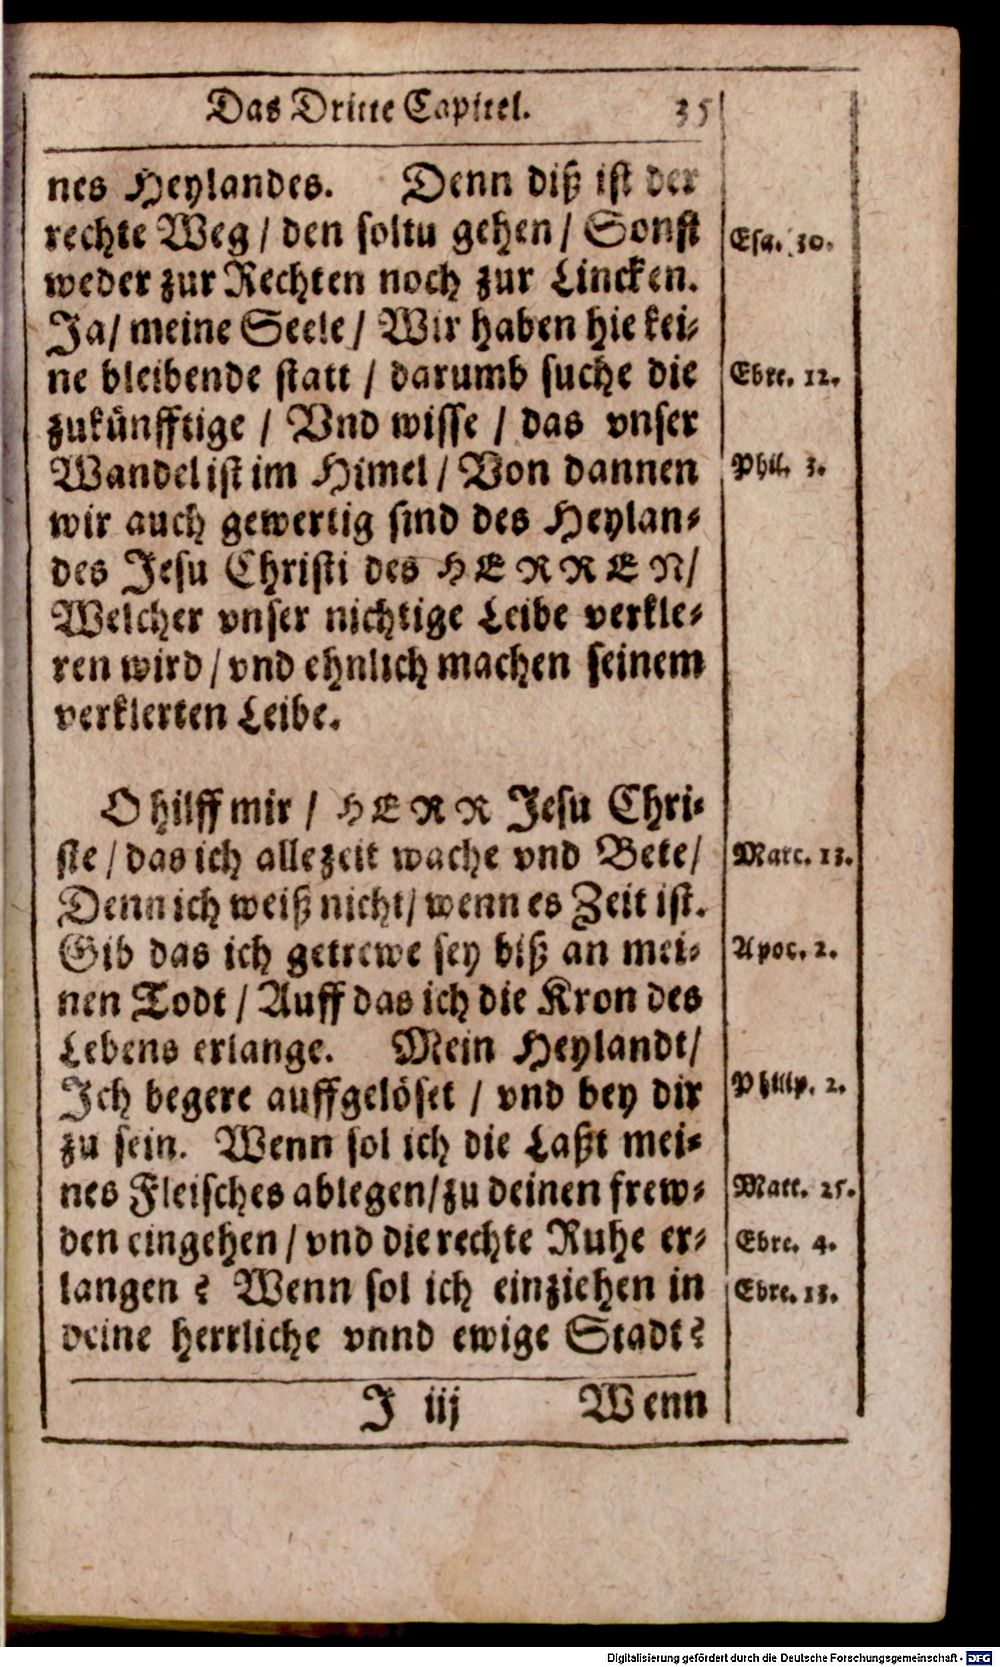 Das Dritte Capitel. 35
nes Heylandes. Denn diß ist der
rechte Weg / den soltu gehen / Sonst
Esa. 30.
weder zur Rechten noch zur Lincken.
Ja / meine Seele / Wir haben hie kei-
ne bleibende statt / darumb suche die
Ebre. 12.
zukünfftige / Vnd wisse / das vnser
Wandel ist im Himel / Von dannen
Phil. 3.
wir auch gewertig sind des Heylan-
des Jesu Christi des HERREN /
Welcher vnser nichtige Leibe verkle-
ren wird / vnd ehnlich machen seinem
verklerten Leibe.
O hilff mir / HERR Jesu Chri-
ste / das ich allezeit wache vnd Bete /
Marc. 13.
Denn ich weiß nicht / wenn es Zeit ist.
Gib das ich getrewe sey biß an mei-
Apoc. 2.
nen Todt / Auff das ich die Kron des
Lebens erlange. Mein Heylandt /
Ich begere auffgelöset / vnd bey dir
Philip. 2.
zu sein. Wenn sol ich die Laßt mei-
nes Fleisches ablegen / zu deinen frew-
Matt. 25.
den eingehen / vnd die rechte Ruhe er-
Ebre. 4.
langen? Wenn sol ich einziehen in
Ebre. 13.
deine herrliche vnnd ewige Stadt?
J iij Wenn
Digitalisierung gefördert durch die Deutsche Forschungsgemeinschaft - DFG